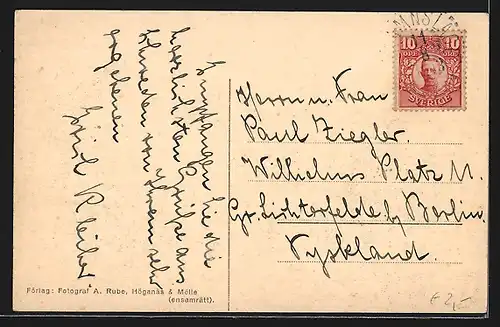 Empfangen Sie die
herzlichsten Grüße aus
Schweden von Ihrem sehr
ergebenen
Erich Kleiber
Herrn u. Frau
Paul Ziegler.
Wilhelms Platz 11.
Gr. Lichterfelde b/ Berlin.
Tyskland.
10 10
ÖRE ÖRE
SVERIGE
Förlag: Fotograf A. Rube, Höganäs & Mölle
(ensamrätt).
€ 2,-